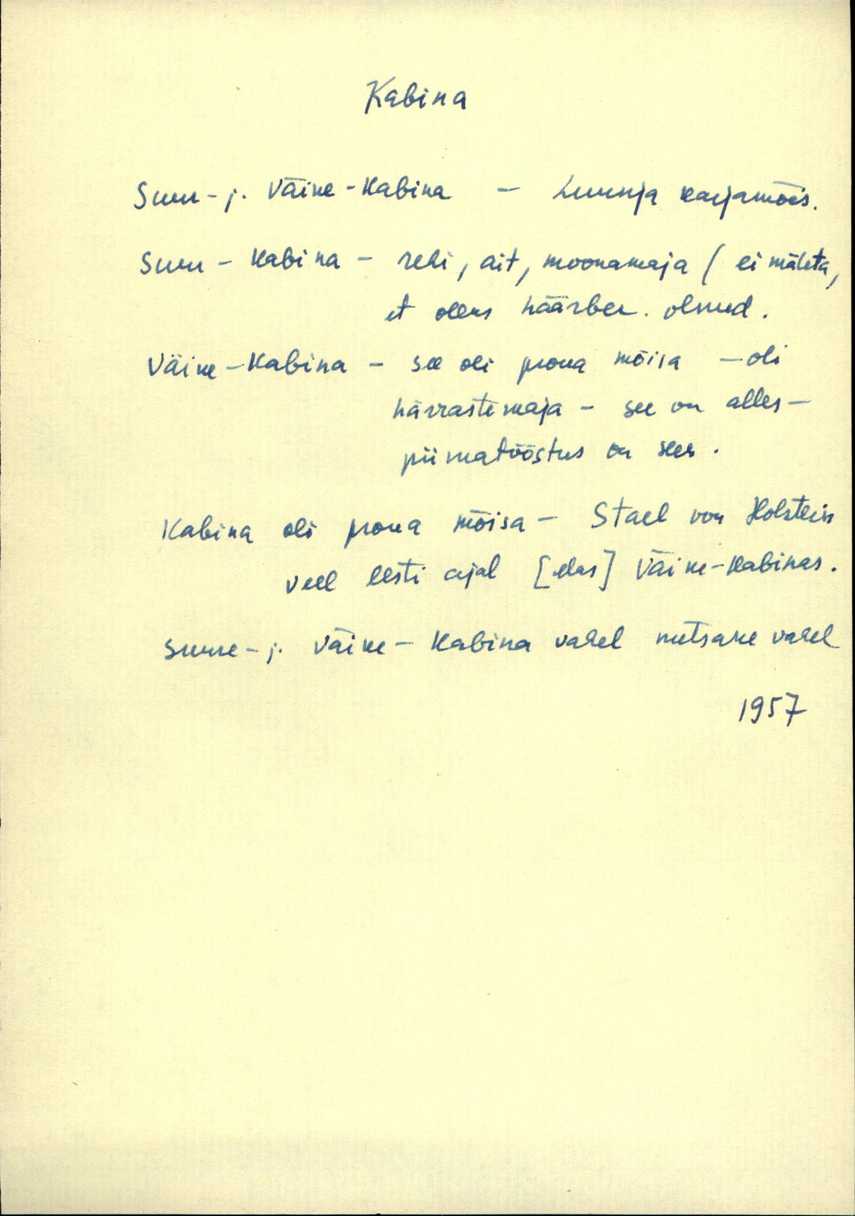 Kabina
Suur- j. Väike-Kabina – Luunja karjamõis.
Suur-Kabina – rehi, ait, moonamaja ( ei mäleta,
et oleks häärber olnud.
Väike-Kabina – see oli proua mõisa – oli
härrastemaja – see on alles –
piimatööstus on sees.
Kabina oli proua mõisa – Stael von Holstein
veel eesti ajal [elas] Väike-Kabinas.
Suure- j. Väike-Kabina vahel metsake vahel
1957